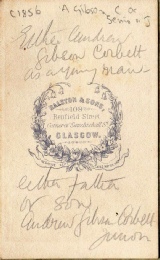 C1856 A Gibson C or
Senior J
Either Andrew
Gibson Corbett
as a young man
RALSTON & SONS,
Renfield Street
GLASGOW.
either father
or son
Andrew Gibson Corbett
Junior